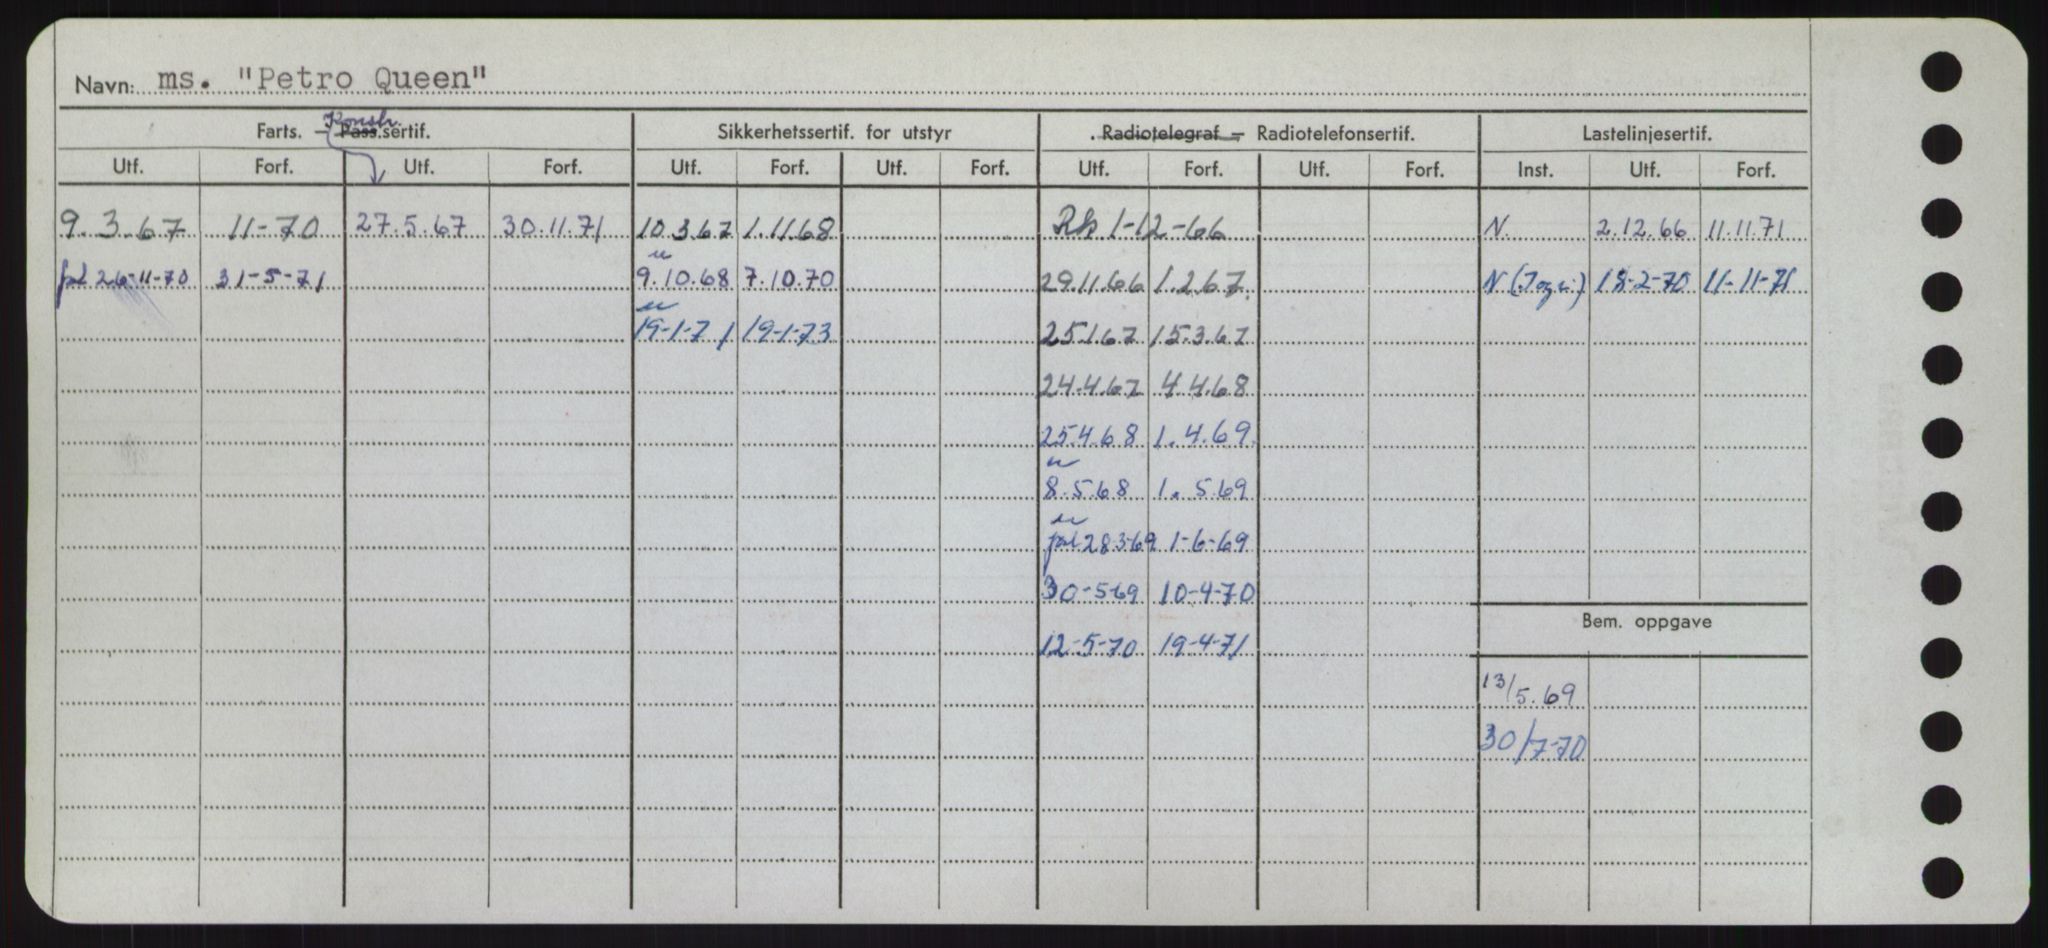 Navn: ms. "Petro Queen"
Farts. – Pass.sertif. Konstr. Sikkerhetssertif. for utstyr Radiotelegraf – Radiotelefonsertif. Lastelinjesertif.
Utf. Forf. Utf. Forf. Utf. Forf. Utf. Forf. Utf. Forf. Utf. Forf. Inst. Utf. Forf.
9.3.67 11-70 27.5.67 30.11.71 10.3.67 1.11.68 Rk 1-12-66 N. 2.12.66 11.11.71
fol 26-11-70 31-5-71 9.10.68 7.10.70 29.11.66 1.2.67. N 18-2-70 11-11-71
19-1-71 19-1-73 25.1.67 15.3.67
24.4.67 4.4.68
25.4.68 1.4.69
8.5.68 1.5.69
28.3-69 1-6-69
30-5-69 10-4-70
12-5-70 19-4-71
Bem. oppgave
13/5.69
30/7-70